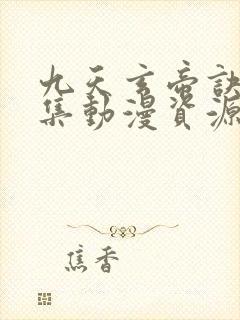 九天玄帝诀
集動漫資源
焦香